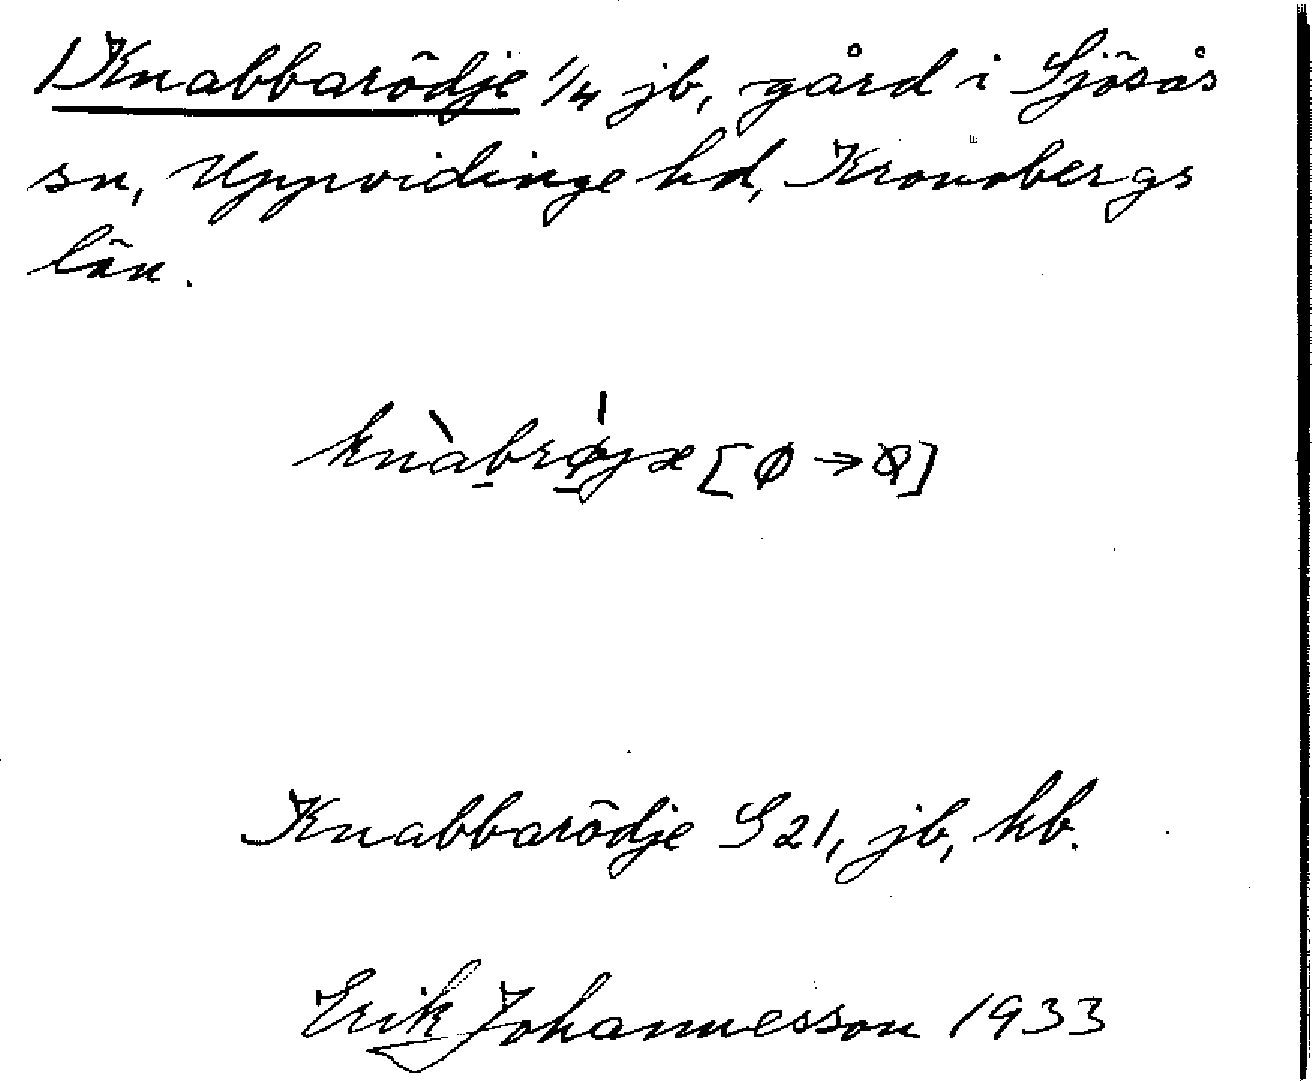 1) Knabbarödje 1/4 jb, gård i Sjösås
sn, Uppvidinge hd, Kronobergs
län.
knàbrǿjæ [ø → ꞝ]
Knabbarödje S 21, jb, hb.
Erik Johannesson 1933